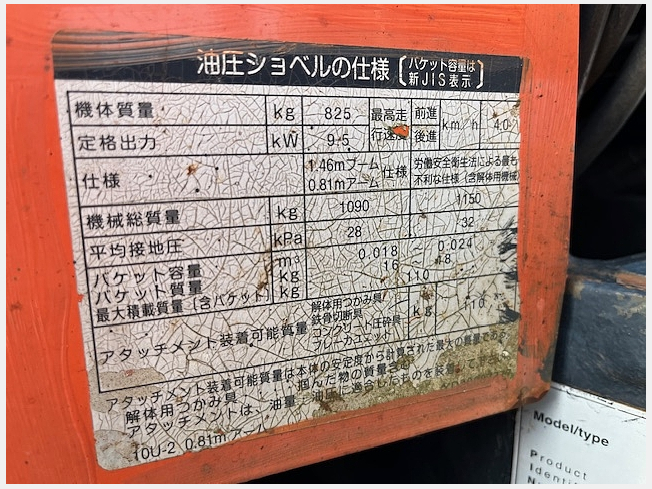 油圧ショベルの仕様〔バケット容量は新JIS表示〕
機体質量 kg 825 最高走行速度 前進 後進 km/h 4.0
定格出力 kW 9.5
仕様 1.46mブーム 0.81mアーム 仕様 労働安全衛生法による最も不利な仕様(含解体用機械)
機械総質量 kg 1090 1150
平均接地圧 kPa 28 32
バケット容量 m³ 0.018 ~ 0.024
バケット質量 kg 16 ~ 18
最大積載質量(含バケット) kg 110
アタッチメント装着可能質量 解体用つかみ具 鉄骨切断具 コンクリート圧砕具 ブレーカユニット kg 110
アタッチメント装着可能質量は本体の安定度から計算された最大の質量である
解体用つかみ具 掴んだ物の質量含む
アタッチメントは、油量 油圧に適合したものを装着して
10U-2 0.81mアーム
Model/type
Product
Identif